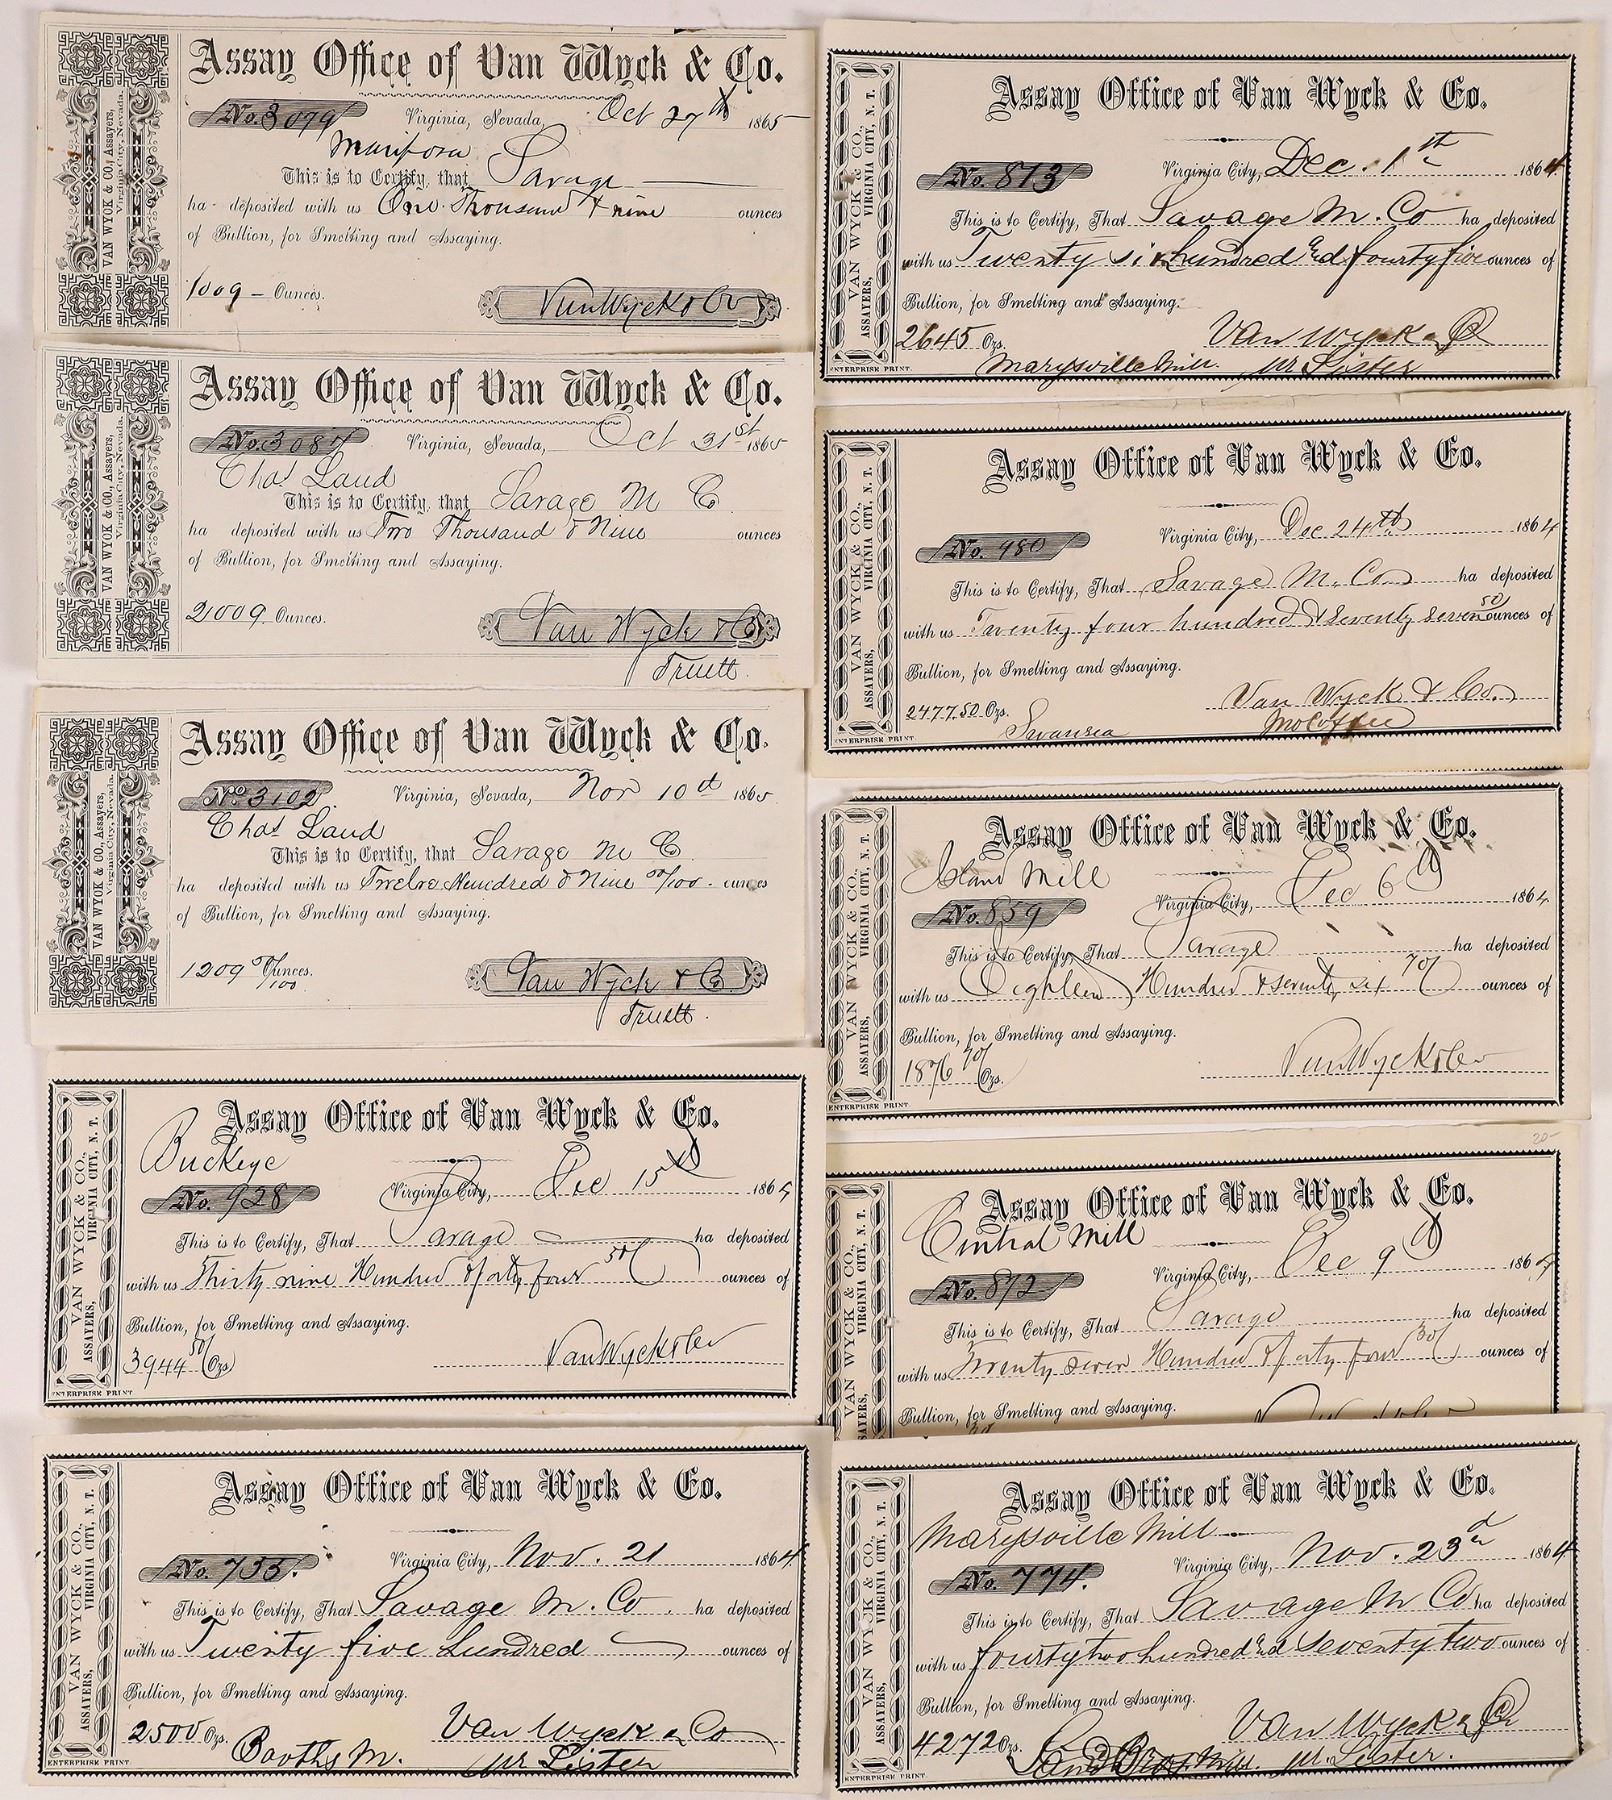 Assay Office of Van Wyck & Co.
No. 3079 Virginia, Nevada, Oct 27th 1865
Mariposa
This is to Certify, that Savage
ha deposited with us One Thousand & nine ounces
of Bullion, for Smelting and Assaying.
1009 - Ounces. Van Wyck & Co
VAN WYCK & CO., Assayers,
Virginia City, Nevada.
Assay Office of Van Wyck & Co.
No. 3087 Virginia, Nevada, Oct 31st 1865
Chas Land
This is to Certify, that Savage M C
ha deposited with us Two Thousand & Nine ounces
of Bullion, for Smelting and Assaying.
2009 Ounces. Van Wyck & Co
Truett
VAN WYCK & CO., Assayers,
Virginia City, Nevada.
Assay Office of Van Wyck & Co.
No 3102 Virginia, Nevada, Nov 10th 1865
Chas Land
This is to Certify, that Savage M C
ha deposited with us Twelve Hundred & Nine /100 ounces
of Bullion, for Smelting and Assaying.
1209 /100 Ounces. Van Wyck & Co
Truett.
VAN WYCK & CO., Assayers,
Virginia City, Nevada.
Assay Office of Van Wyck & Co.
Buckeye
No. 928 Virginia City, Dec 15th 1864
This is to Certify, That Savage ha deposited
with us Thirty nine Hundred & forty four 50/ ounces of
Bullion, for Smelting and Assaying.
3944 50/ Ozs Van Wyck & Co
VAN WYCK & CO.,
ASSAYERS, VIRGINIA CITY, N. T.
ENTERPRISE PRINT
Assay Office of Van Wyck & Co.
No. 735. Virginia City, Nov. 21 1864
This is to Certify, That Savage M. Co. ha deposited
with us Twenty five hundred ounces of
Bullion, for Smelting and Assaying.
2500 Ozs. Van Wyck & Co
Booths M. pr Lister
VAN WYCK & CO.,
ASSAYERS, VIRGINIA CITY, N. T.
ENTERPRISE PRINT
Assay Office of Van Wyck & Co.
No. 813 Virginia City, Dec. 1th 1864
This is to Certify, That Savage M. Co ha deposited
with us Twenty six hundred and fourty five ounces of
Bullion, for Smelting and Assaying.
2645 Ozs. Van Wyck & Co
Marysville Mill. pr Lister
VAN WYCK & CO.,
ASSAYERS, VIRGINIA CITY, N. T.
ENTERPRISE PRINT.
Assay Office of Van Wyck & Co.
No. 980 Virginia City, Dec 24th 1864
This is to Certify, That Savage M. Co ha deposited
with us Twenty four hundred & seventy seven 50/ ounces of
Bullion, for Smelting and Assaying.
2477.50 Ozs. Van Wyck & Co.
Swansea
VAN WYCK & CO.,
ASSAYERS, VIRGINIA CITY, N. T.
ENTERPRISE PRINT
Assay Office of Van Wyck & Co.
Island Mill
No. 859 Virginia City, Dec 6th 1864
This is to Certify, That Savage ha deposited
with us Eighteen Hundred & seventy six 70/ ounces of
Bullion, for Smelting and Assaying.
1876 70/ Ozs. Van Wyck & Co
VAN WYCK & CO.,
ASSAYERS, VIRGINIA CITY, N. T.
ENTERPRISE PRINT
20-
Assay Office of Van Wyck & Co.
Central Mill
No. 872 Virginia City, Dec 9th 1864
This is to Certify, That Savage ha deposited
with us Twenty seven Hundred & forty four 30/ ounces of
Bullion, for Smelting and Assaying.
VAN WYCK & CO.,
ASSAYERS, VIRGINIA CITY, N. T.
Assay Office of Van Wyck & Co.
Marysville Mill
No. 774. Virginia City, Nov. 23d 1864
This is to Certify, That Savage M Co ha deposited
with us fourty two hundred and seventy two ounces of
Bullion, for Smelting and Assaying.
4272 Ozs. Van Wyck & Co
pr. Lister.
VAN WYCK & CO.,
ASSAYERS, VIRGINIA CITY, N. T.
ENTERPRISE PRINT.